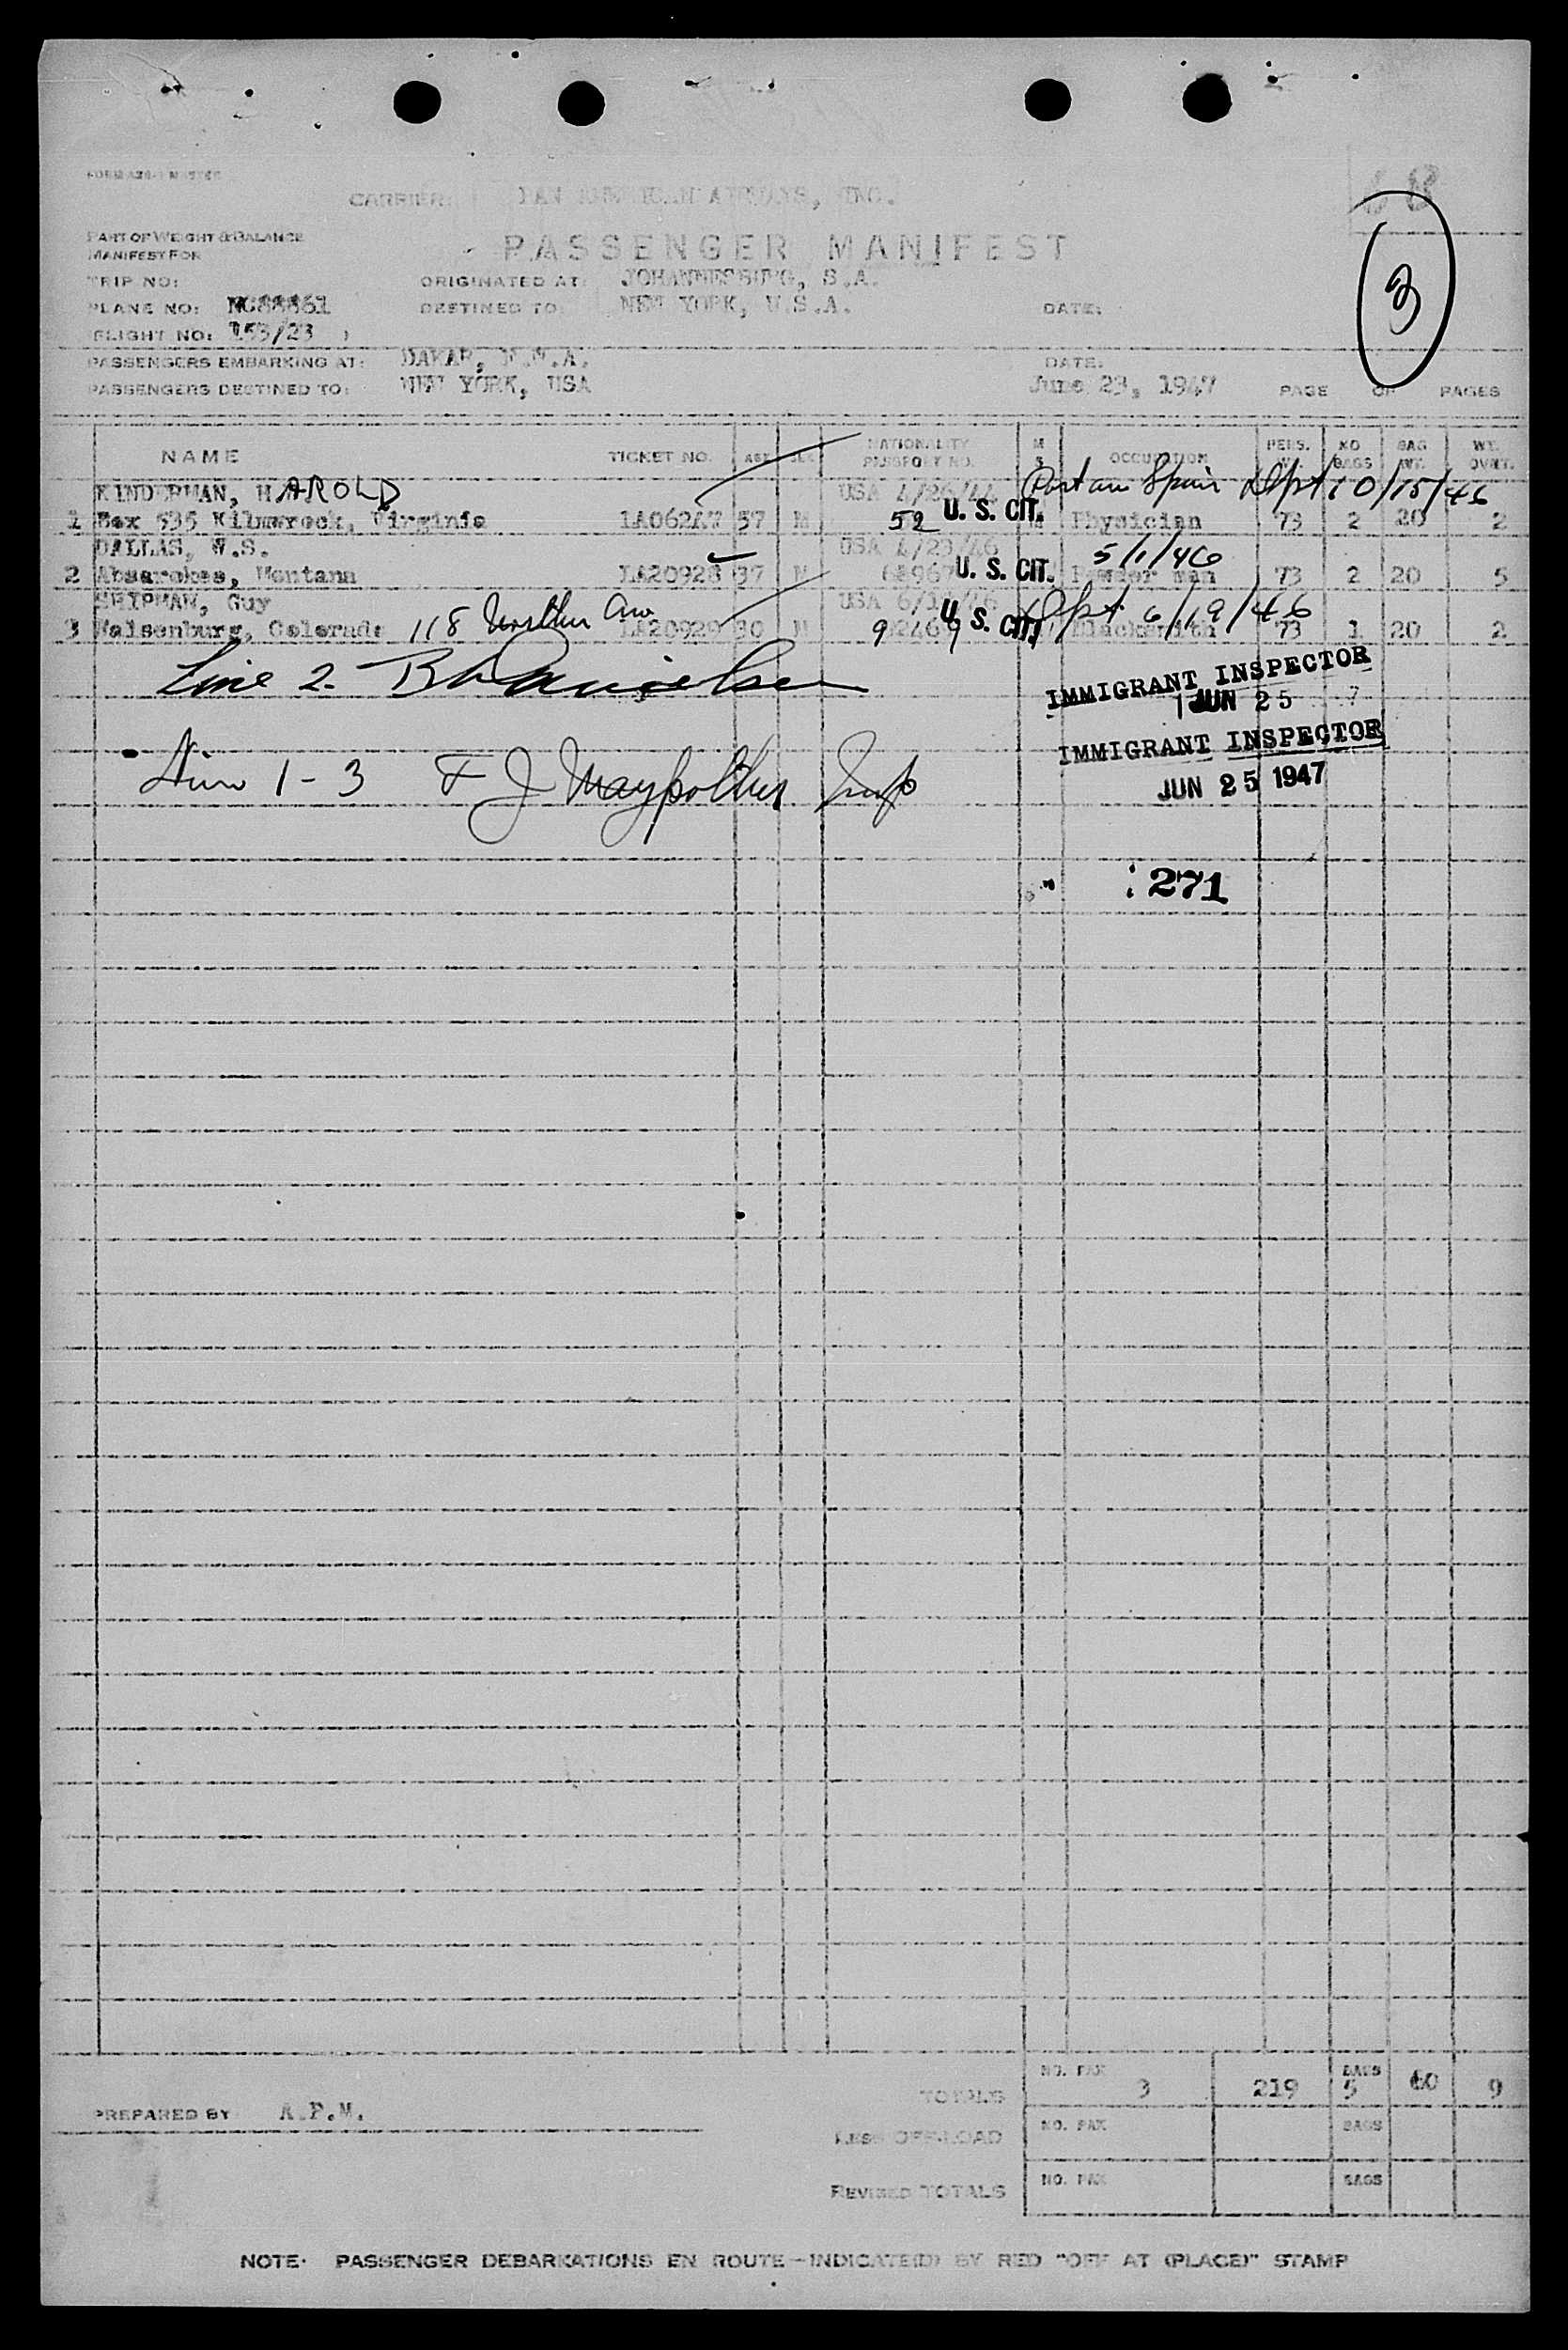 CARRIER: PAN AMERICAN AIRWAYS, INC.
PART OF WEIGHT & BALANCE
MANIFEST FOR
PASSENGER MANIFEST
3
TRIP NO:
ORIGINATED AT: JOHANNESBURG, S.A.
PLANE NO: NC88861
DESTINED TO: NEW YORK, U.S.A.
DATE:
FLIGHT NO: 153/23
PASSENGERS EMBARKING AT: DAKAR, F.W.A.
DATE:
PASSENGERS DESTINED TO: NEW YORK, USA
June 23, 1947
PAGE OF PAGES
NAME TICKET NO. AGE SEX NATIONALITY PASSPORT NO. M S OCCUPATION PERS. WT. NO BAGS BAG WT. WT. OVRT.
KINDERMAN, HAROLD USA 4/26/44 Port au Spain Dpt 10/15/46
1 Box 535 Kilmarnock, Virginia 1A06247 37 M 52 U. S. CIT. Physician 73 2 20 2
DALLAS, W.S. USA 4/23/46 5/1/46
2 Absarokee, Montana LA20928 37 M U. S. CIT. Powder man 73 2 20 5
SHIPMAN, Guy USA Dpt 6/19/46
3 Walsenburg, Colorado 118 LA20929 30 M U. S. CIT. Blacksmith 73 1 20 2
Line 2. Danielsen
IMMIGRANT INSPECTOR
JUN 25 7
IMMIGRANT INSPECTOR
JUN 25 1947
1-3 F J Maypother Insp
271
TOTALS NO. PAX 3 219 BAGS 5 60 9
PREPARED BY A.P.M.
LESS OFF-LOAD NO. PAX BAGS
REVISED TOTALS NO. PAX BAGS
NOTE: PASSENGER DEBARKATIONS EN ROUTE—INDICATE(D) BY RED "OFF AT (PLACE)" STAMP